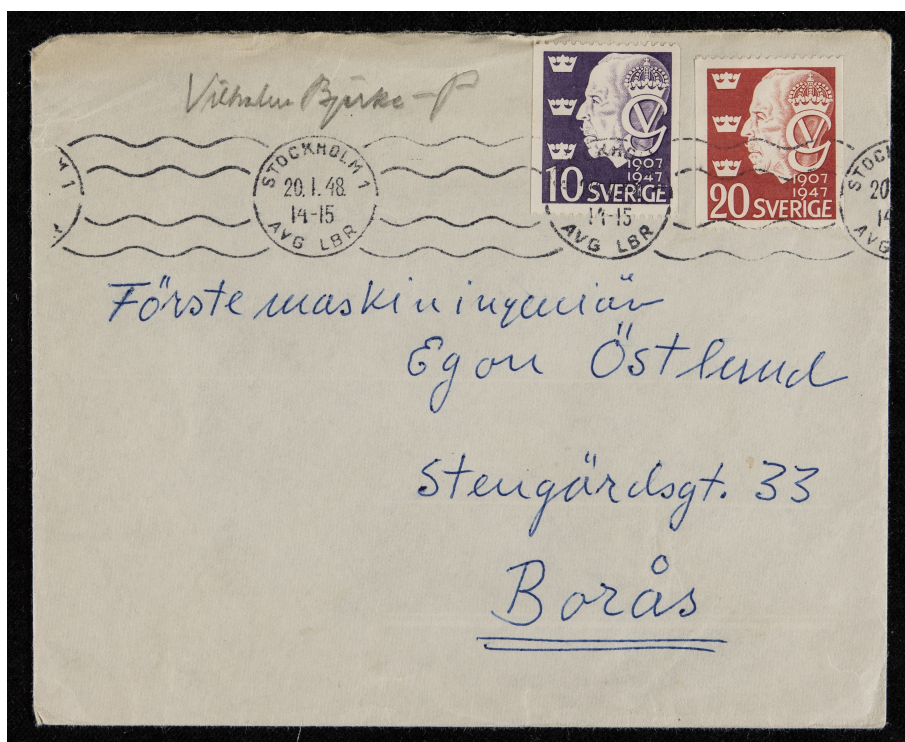 Vilhelm Bjerke-P
STOCKHOLM 1
20.1.48
14-15
AVG LBR
1907
1947
10 SVERIGE
14-15
AVG LBR
1907
1947
20 SVERIGE
STOCK
20
14
AVG
Förstemaskiningeniör
Egon Östlund
Stengärdsgt. 33
Borås